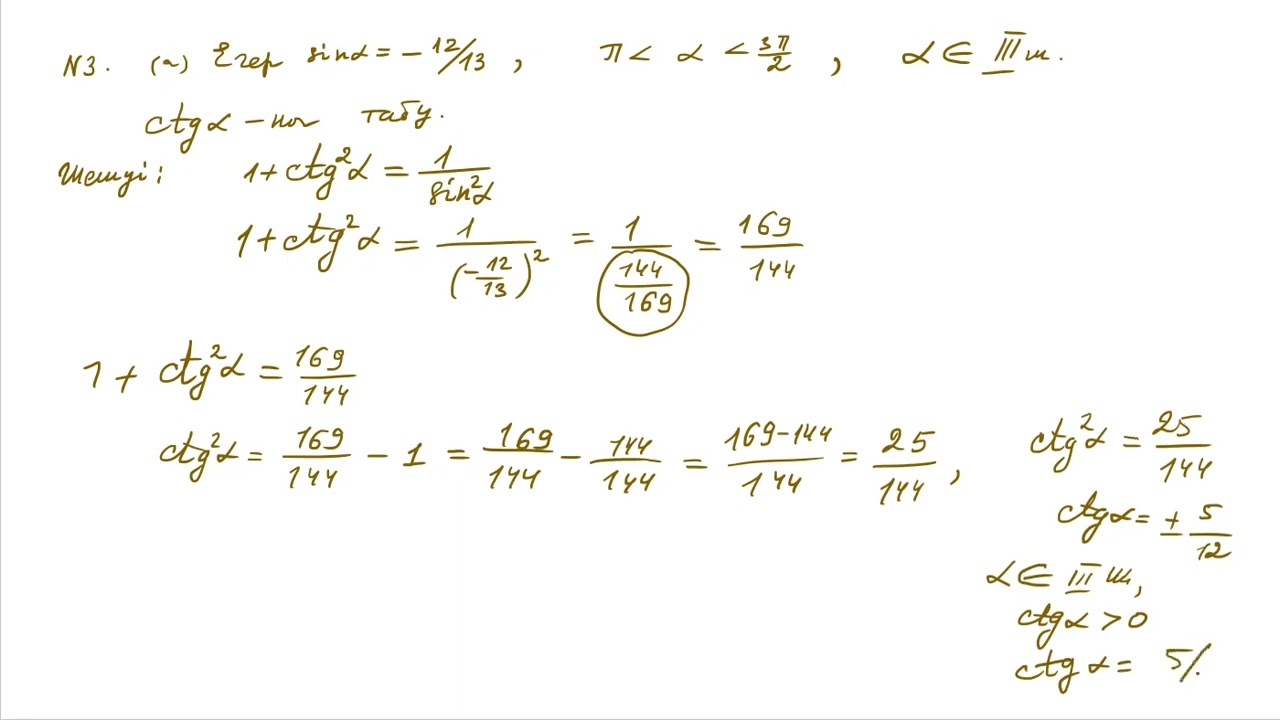 N3. (а) Егер sinα = −12/13, π < α < 3π/2, α ∈ III ш.
ctgα −ны табу.
Шешуі: 1 + ctg²α = 1/sin²α
1 + ctg²α = 1/(−12/13)² = 1/(144/169) = 169/144
1 + ctg²α = 169/144
ctg²α = 169/144 − 1 = 169/144 − 144/144 = (169−144)/144 = 25/144,
ctg²α = 25/144
ctgα = ± 5/12
α ∈ III ш,
ctgα > 0
ctgα = 5/